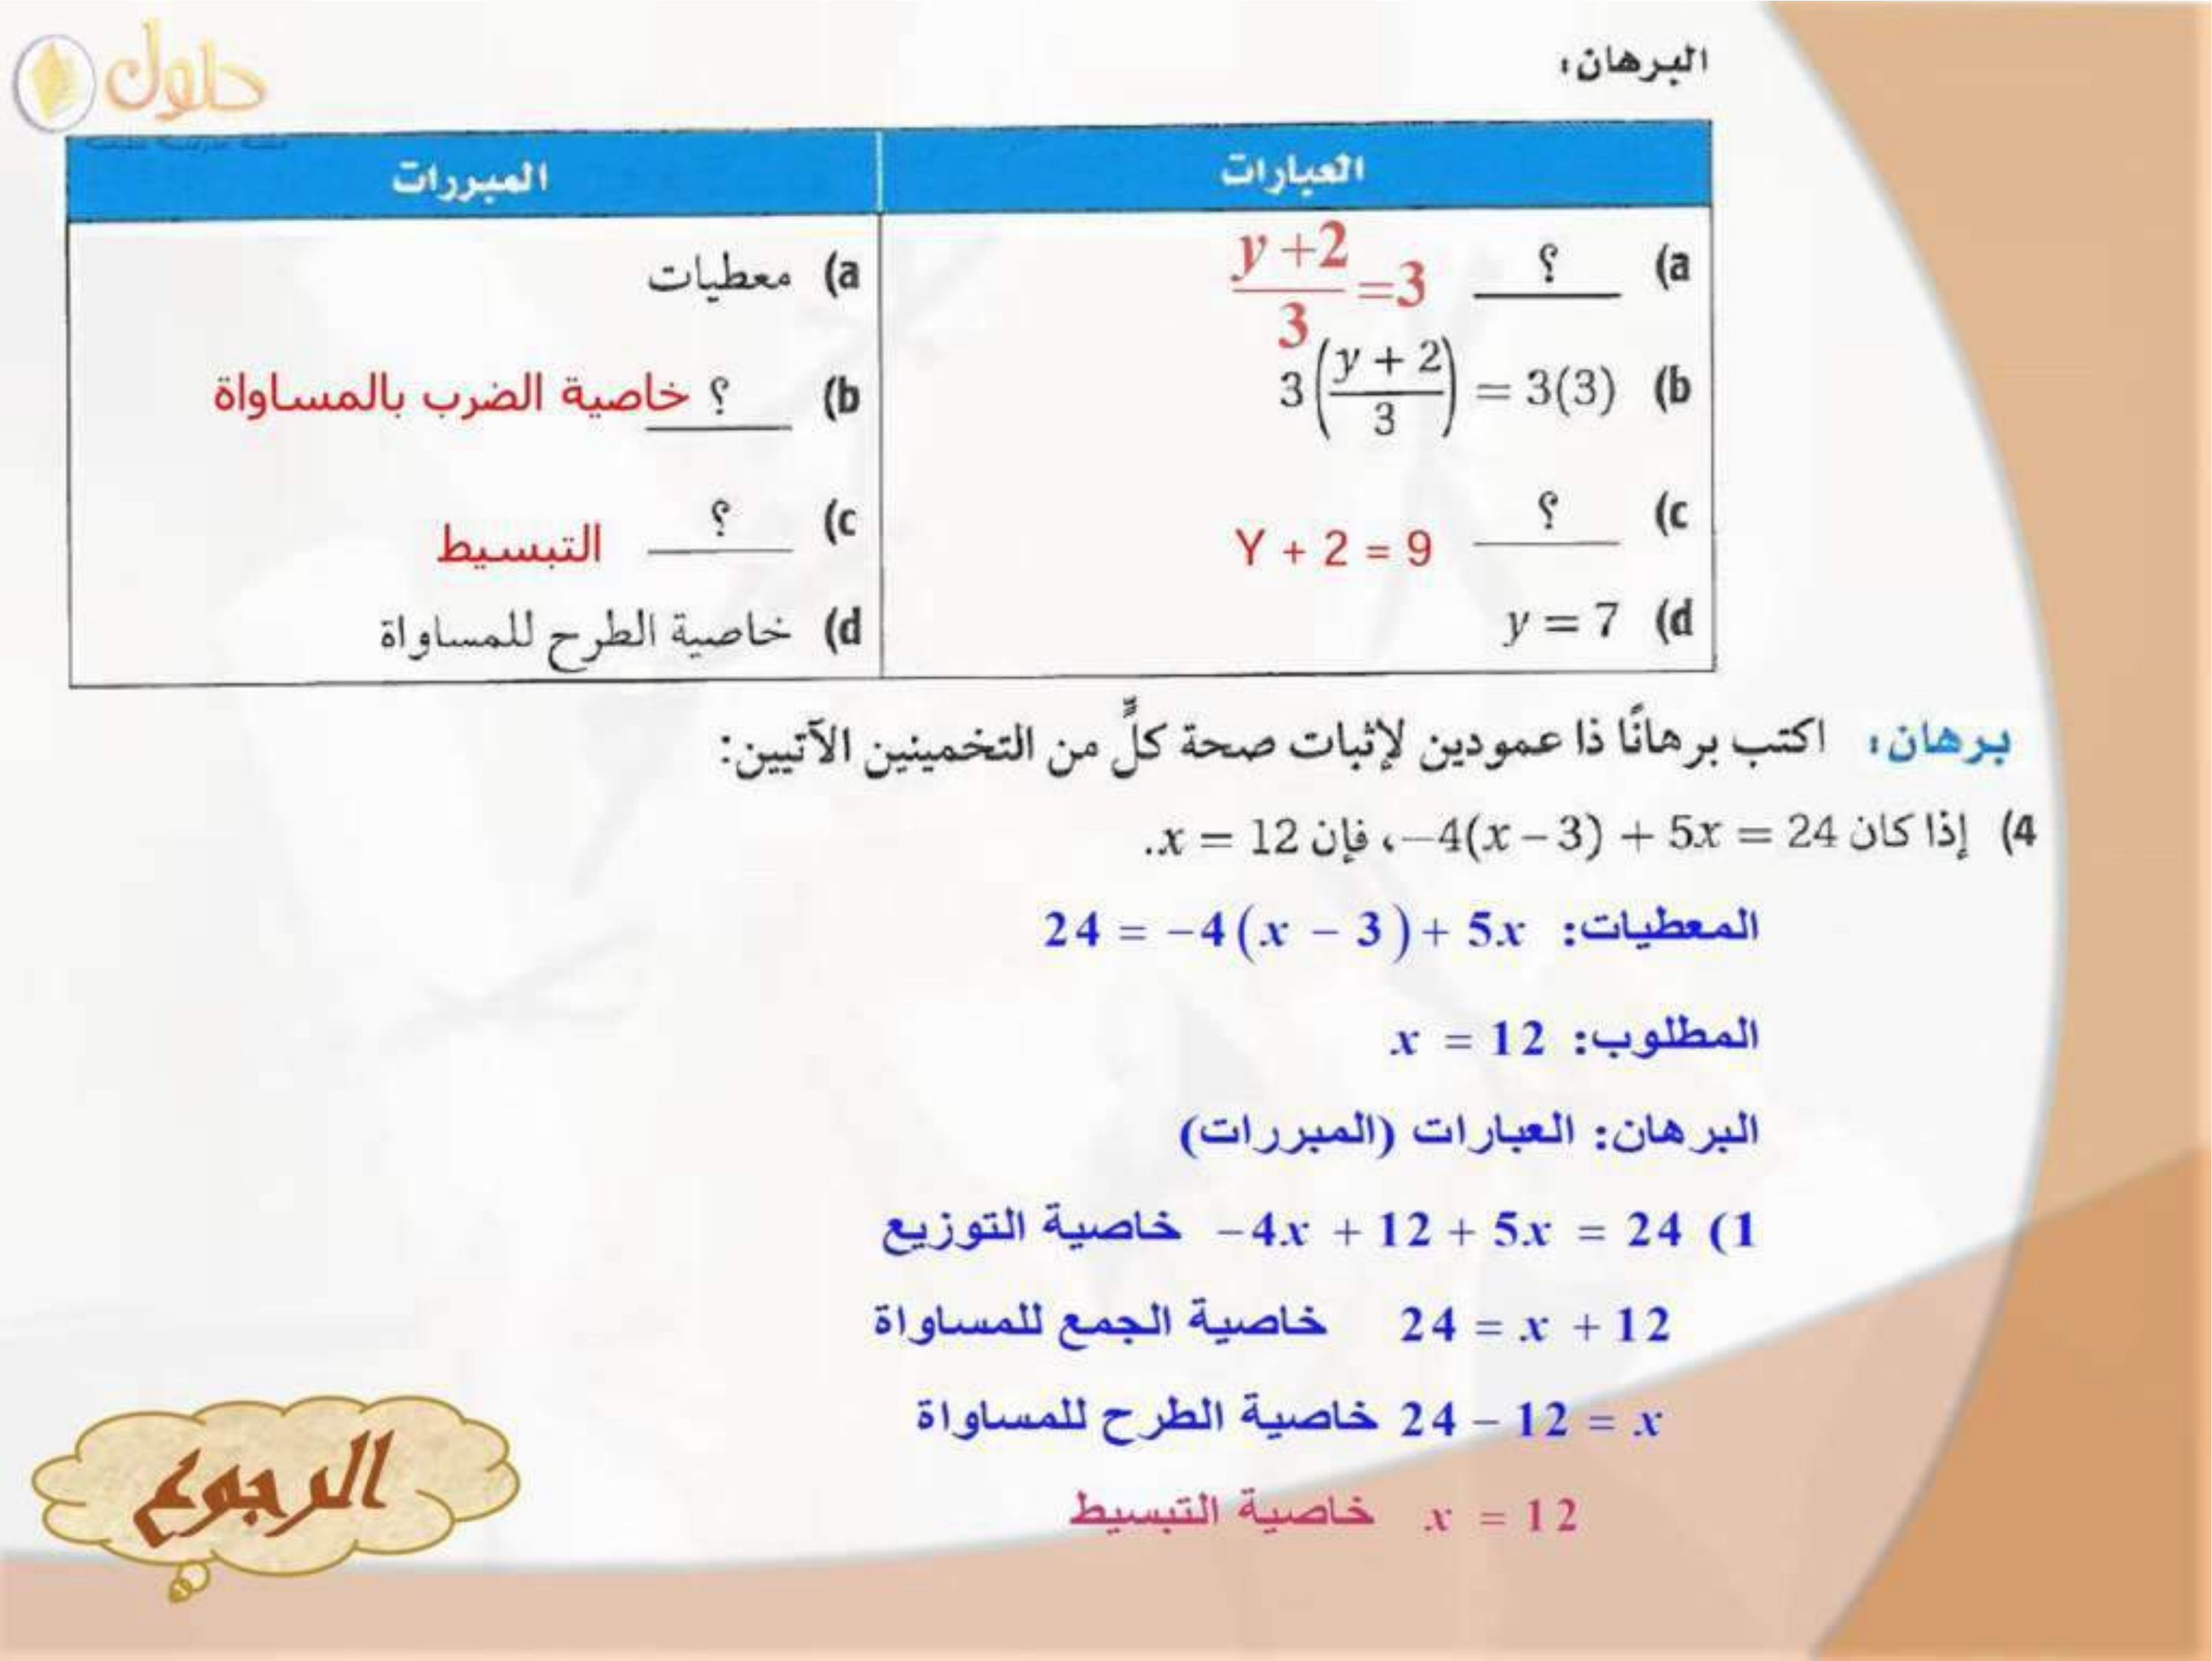 حلول
البرهان:
العبارات	المبررات
(a ؟ y + 2 / 3 = 3	(a معطيات
(b 3(y + 2 / 3) = 3(3)	(b ؟ خاصية الضرب بالمساواة
(c ؟ Y + 2 = 9	(c ؟ التبسيط
(d y = 7	(d خاصية الطرح للمساواة
برهان: اكتب برهانًا ذا عمودين لإثبات صحة كلٍّ من التخمينين الآتيين:
(4 إذا كان 24 = −4(x − 3) + 5x، فإن x = 12.
المعطيات: 24 = −4(x − 3) + 5x
المطلوب: x = 12
البرهان: العبارات (المبررات)
(1 −4x + 12 + 5x = 24 خاصية التوزيع
24 = x + 12 خاصية الجمع للمساواة
24 − 12 = x خاصية الطرح للمساواة
x = 12 خاصية التبسيط
الرجوع